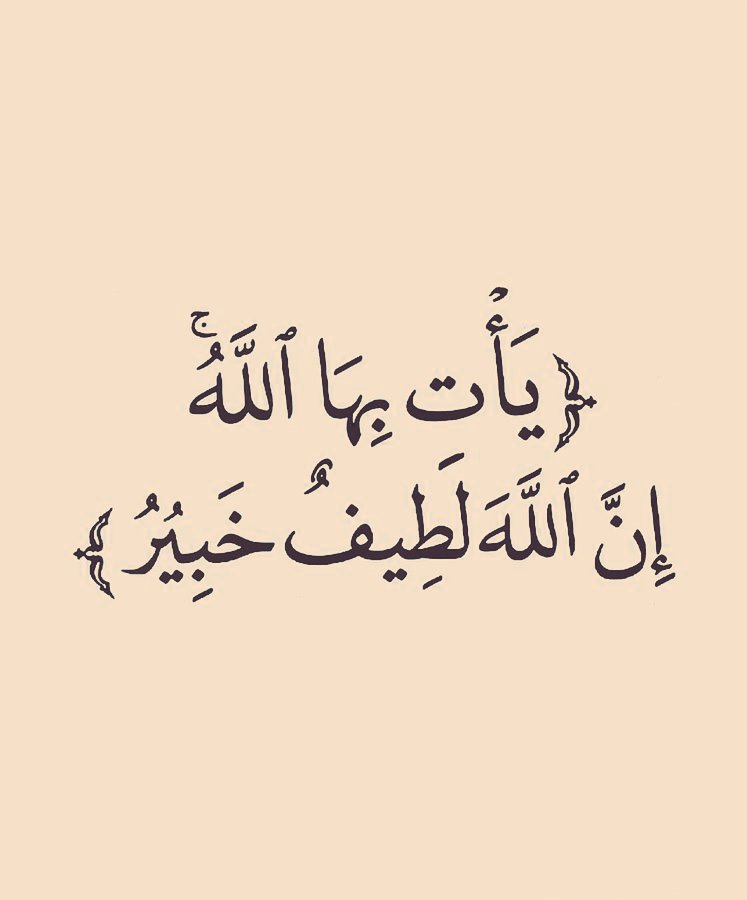 ﴿يَأْتِ بِهَا ٱللَّهُ ۚ
إِنَّ ٱللَّهَ لَطِيفٌ خَبِيرُ﴾